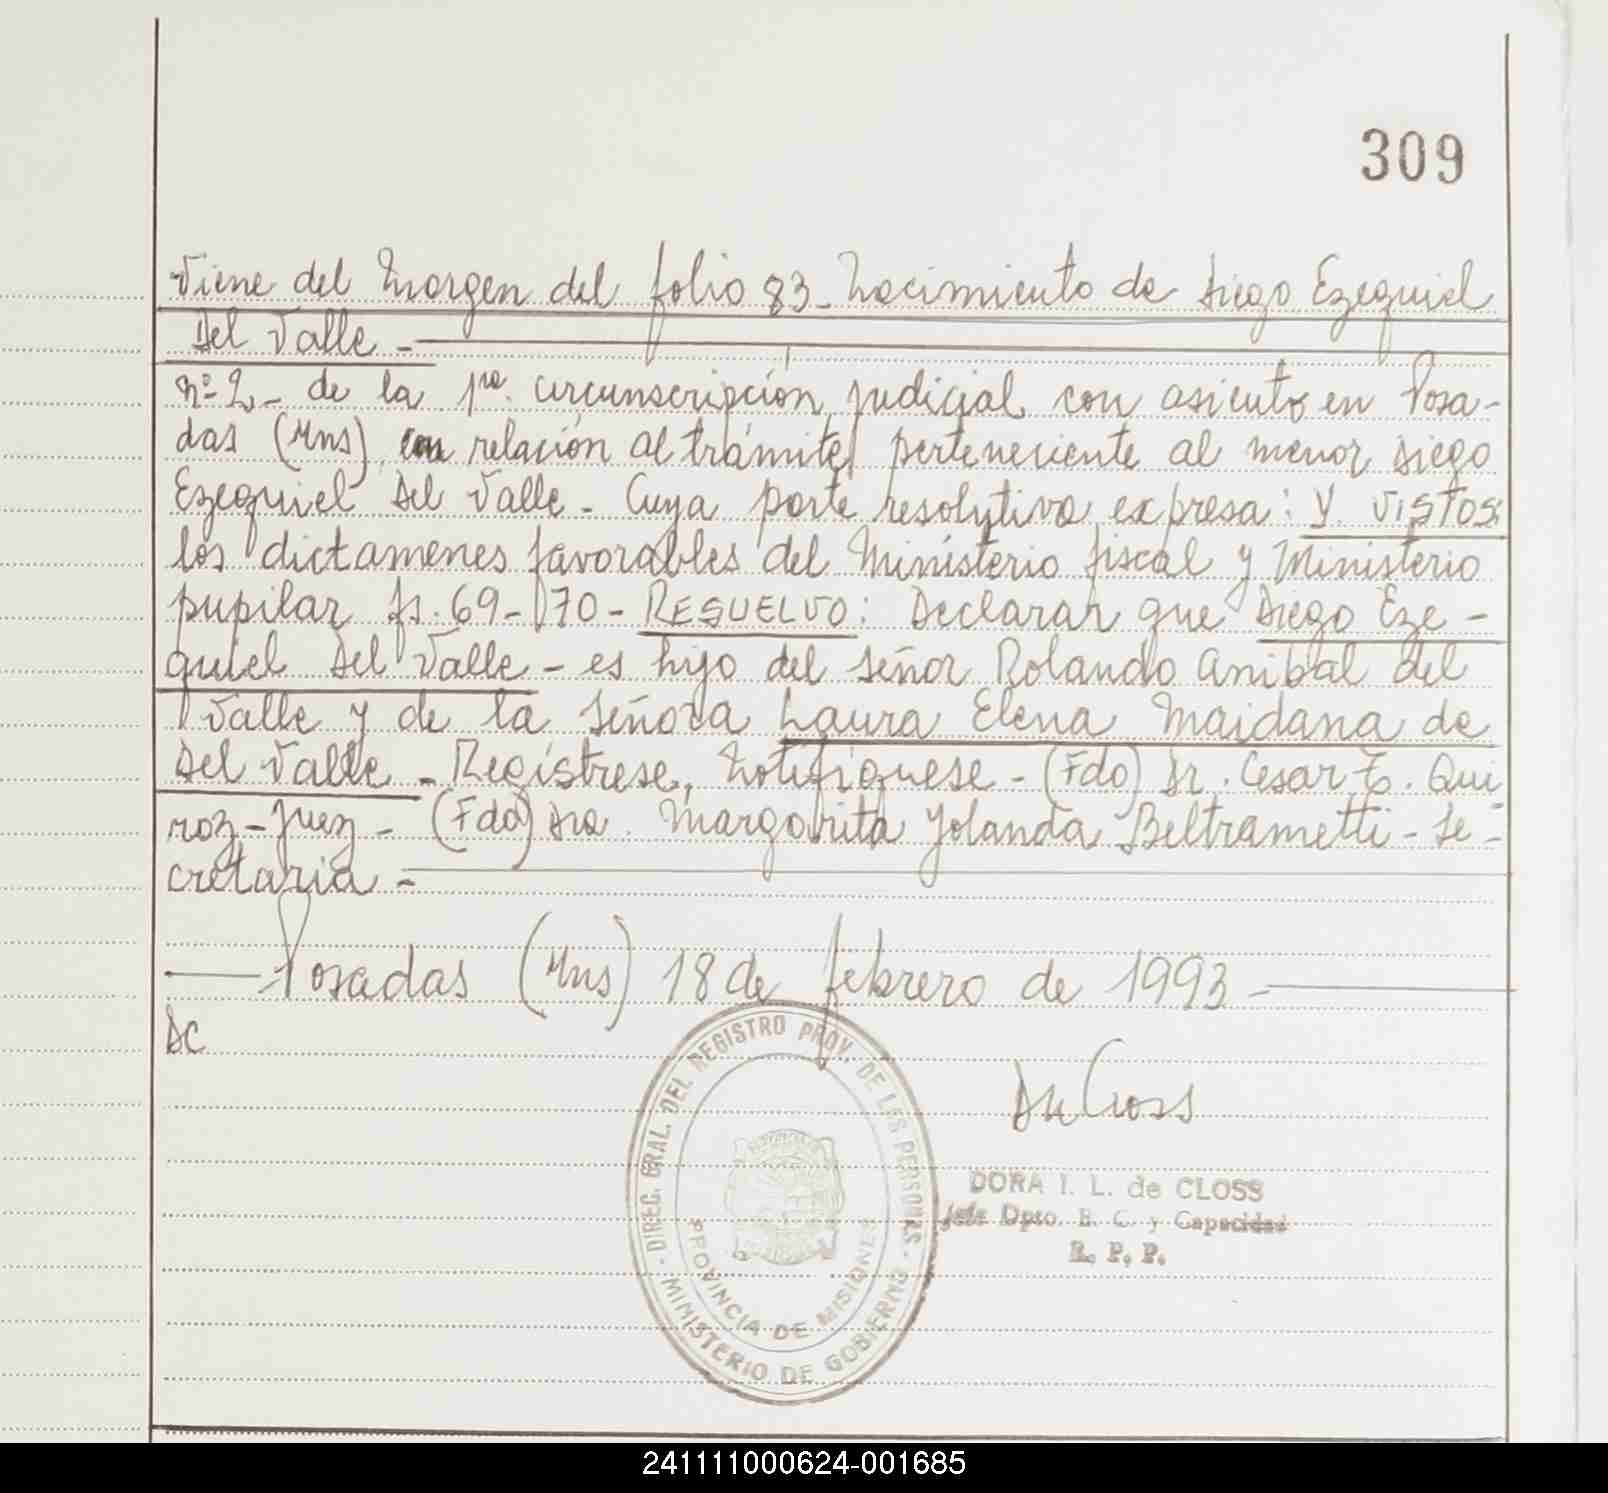 309
Viene del Margen del folio 83_ Nacimiento de Diego Ezequiel
Del Valle -
nº 2_ de la 1ra. circunscripción judicial con asiento en Posa-
das (Mns), con relación al trámite perteneciente al menor Diego
Ezequiel Del Valle - Cuya parte resolutiva expresa: Y VISTOS:
los dictamenes favorables del Ministerio fiscal y Ministerio
pupilar fs. 69-70- RESUELVO: Declarar que Diego Eze-
quiel Del Valle - es hijo del señor Rolando Anibal del
Valle y de la señora Laura Elena Maidana de
Del Valle - Regístrese, Notifíquese - (Fdo) Dr. Cesar E. Qui
roz - Juez - (Fdo) Dra. Margarita Yolanda Beltrametti - Se-
cretaria -
Posadas (Mns) 18 de febrero de 1993 -
DC
DIREC. GRAL. DEL REGISTRO PROV. DE LAS PERSONAS
MINISTERIO DE GOBIERNO
PROVINCIA DE MISIONES
DORA I. L. de CLOSS
Jefe Dpto. E. C. y Capacidad
R. P. P.
241111000624-001685